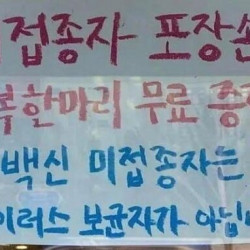 미접종자 포장손
복한마리 무료 증
백신 미접종자는
이러스 보균자가 아닙니